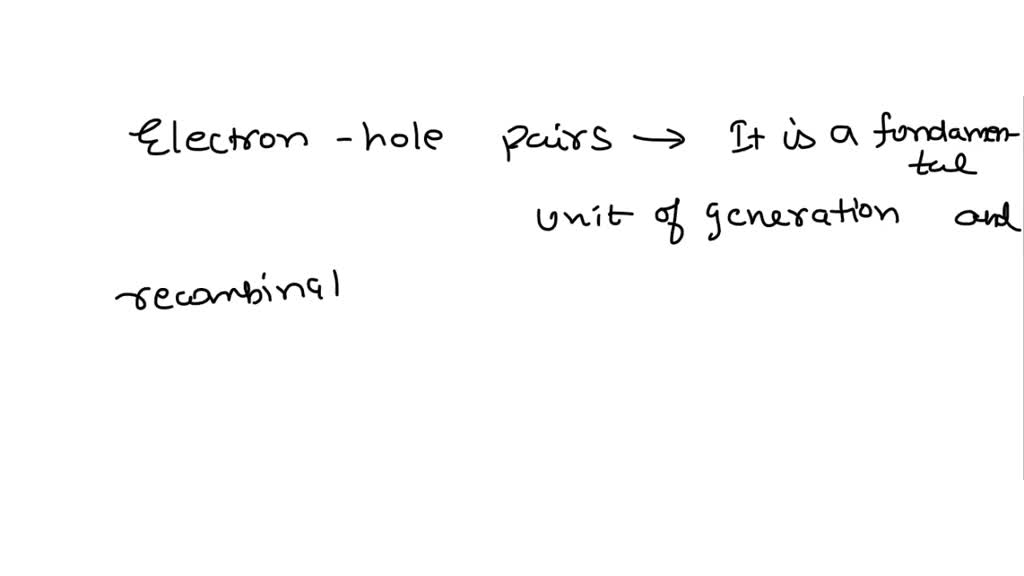 Electron - hole pairs → It is a fundamen-
tal
unit of generation and
recombinal